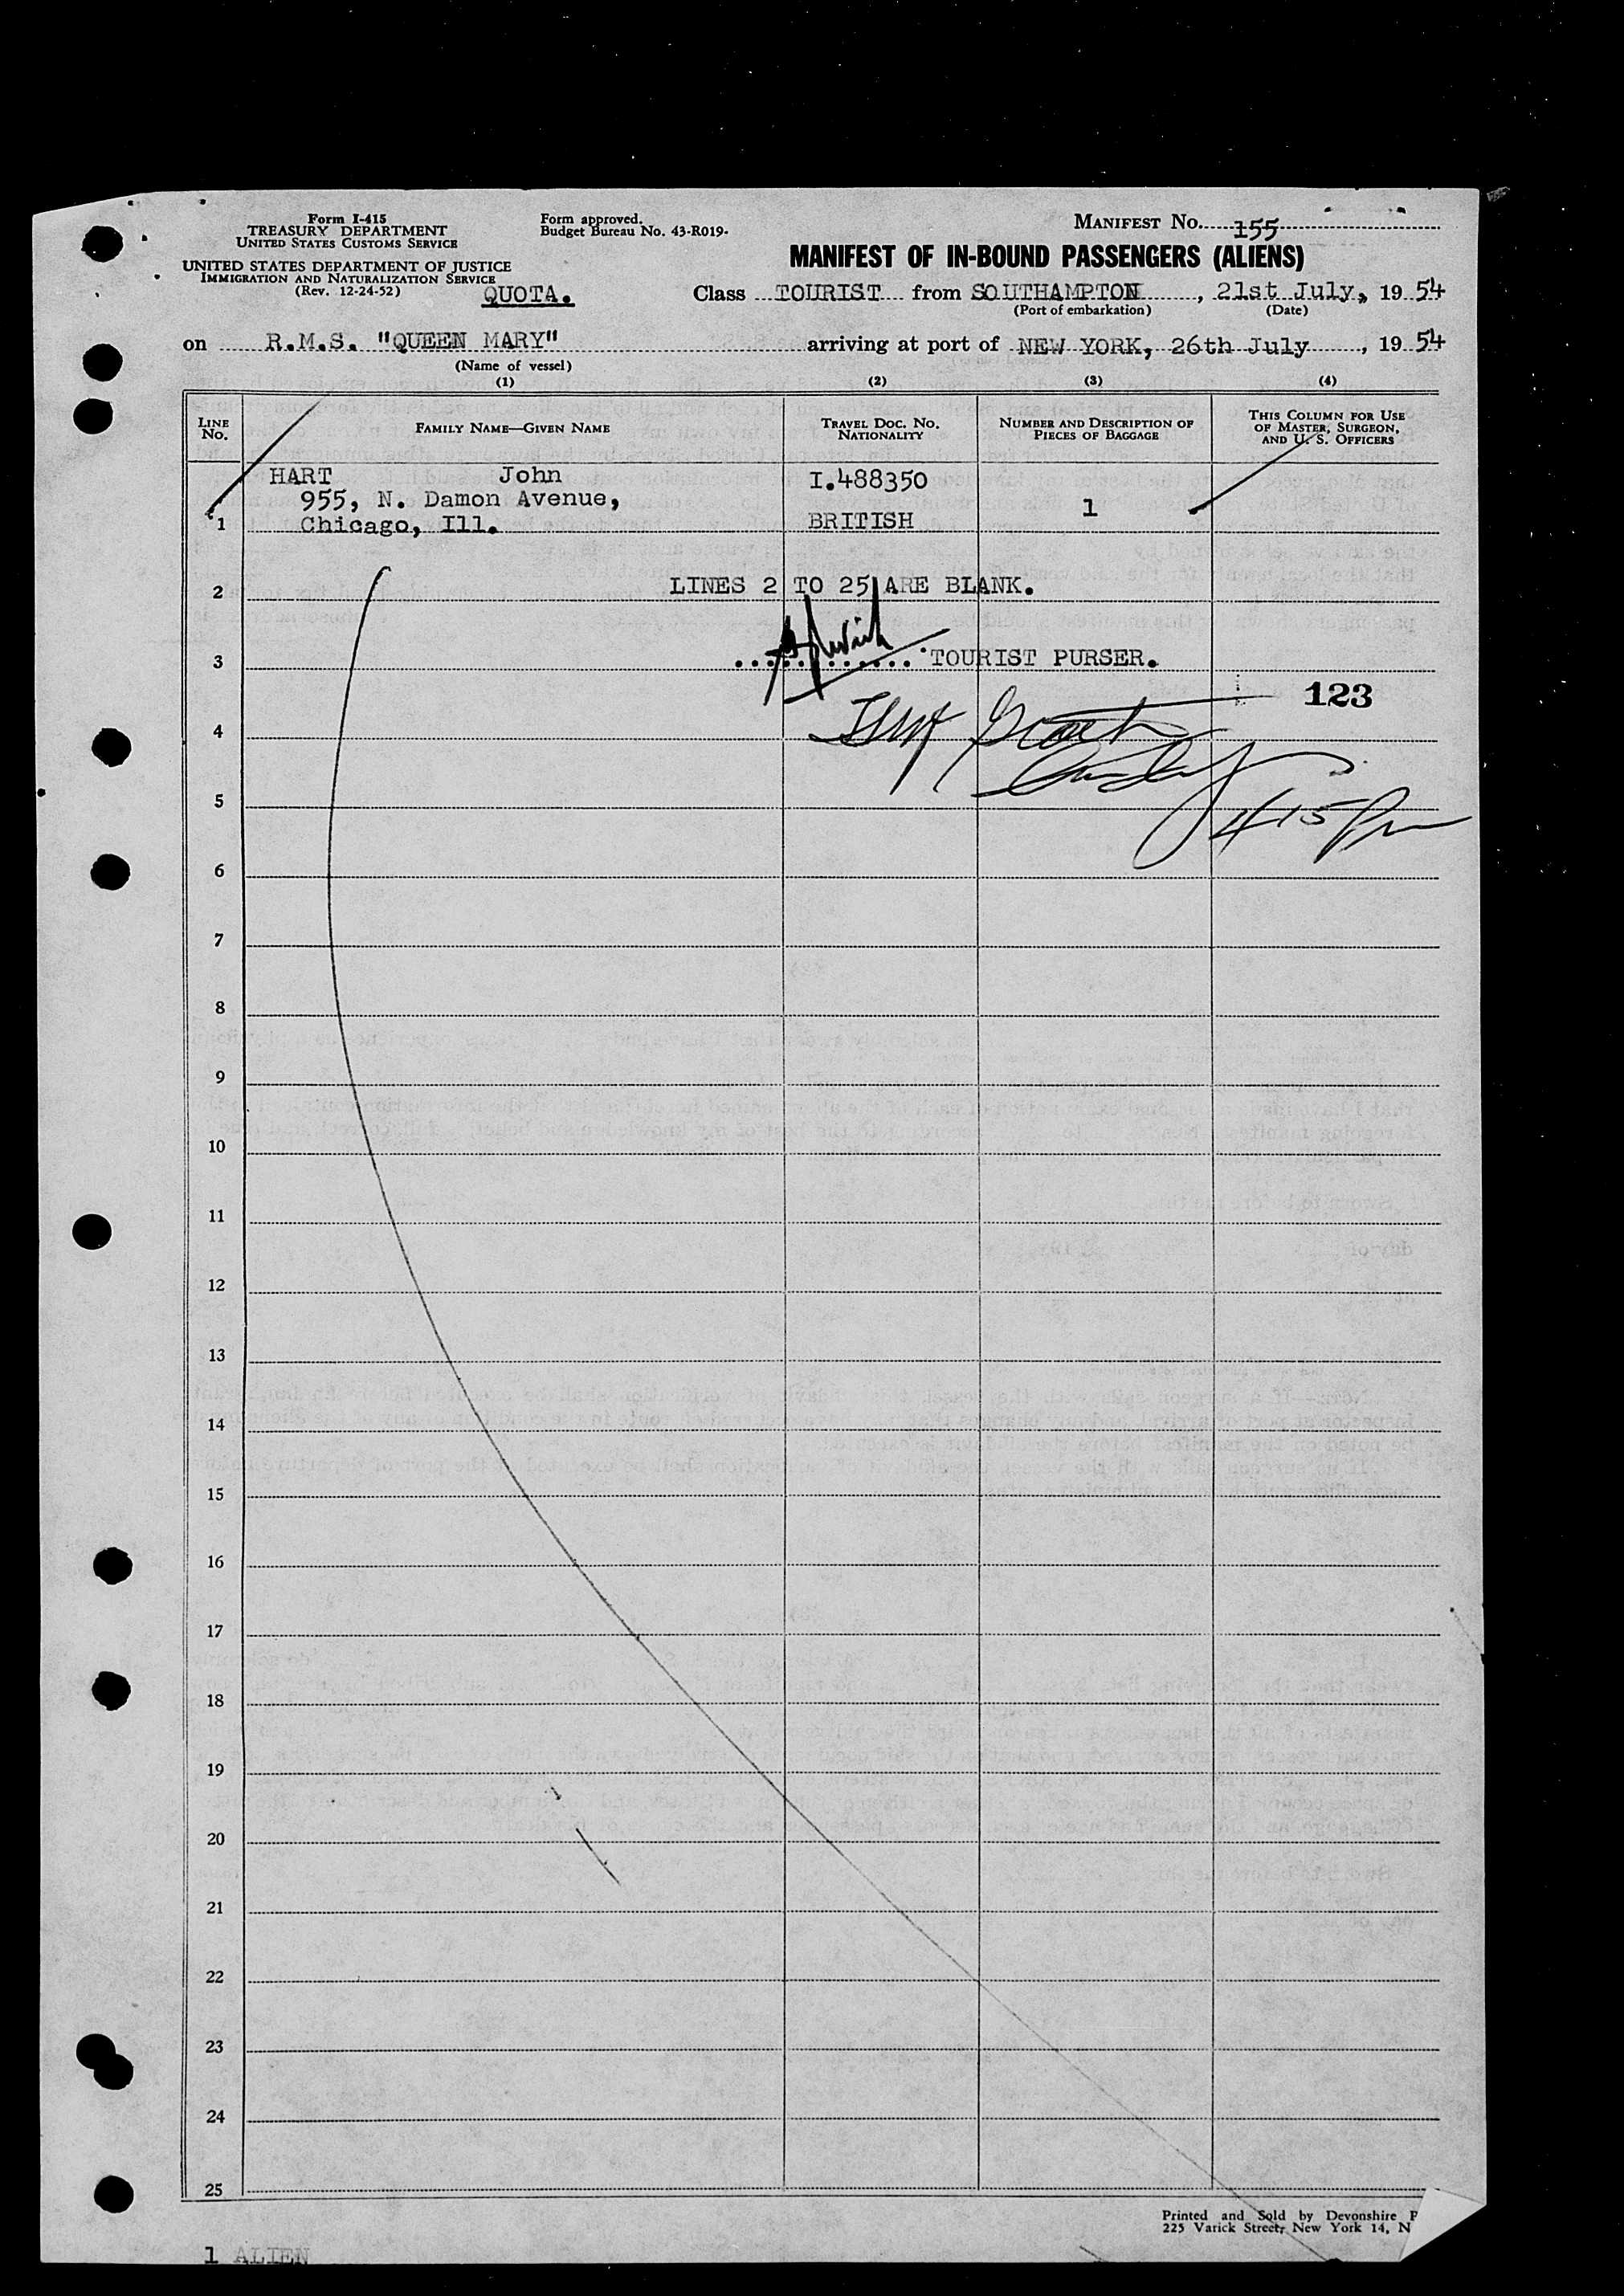 Form I-415
TREASURY DEPARTMENT
UNITED STATES CUSTOMS SERVICE
UNITED STATES DEPARTMENT OF JUSTICE
IMMIGRATION AND NATURALIZATION SERVICE
(Rev. 12-24-52)
QUOTA.
Form approved.
Budget Bureau No. 43-R019-
MANIFEST No. 155
MANIFEST OF IN-BOUND PASSENGERS (ALIENS)
Class TOURIST from SOUTHAMPTON, 21st July, 19 54
(Port of embarkation) (Date)
on R.M.S. "QUEEN MARY" arriving at port of NEW YORK, 26th July, 19 54
(Name of vessel)
(1) (2) (3) (4)
LINE No. FAMILY NAME—GIVEN NAME TRAVEL DOC. No. NATIONALITY NUMBER AND DESCRIPTION OF PIECES OF BAGGAGE THIS COLUMN FOR USE OF MASTER, SURGEON, AND U. S. OFFICERS
HART John I.488350
955, N. Damon Avenue, 1
1 Chicago, Ill. BRITISH
2 LINES 2 TO 25 ARE BLANK.
3 TOURIST PURSER.
123
4
5
415 Pm
6
7
8
9
10
11
12
13
14
15
16
17
18
19
20
21
22
23
24
25
Printed and Sold by Devonshire P
225 Varick Street, New York 14, N
1 ALIEN